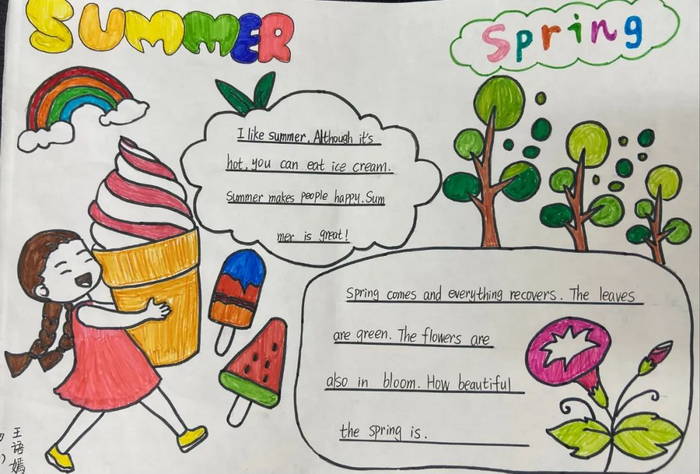 SUMMER
Spring
I like summer. Although it's
hot, you can eat ice cream.
Summer makes people happy. Sum
mer is great!
Spring comes and everything recovers. The leaves
are green. The flowers are
also in bloom. How beautiful
the spring is.
王语嫣